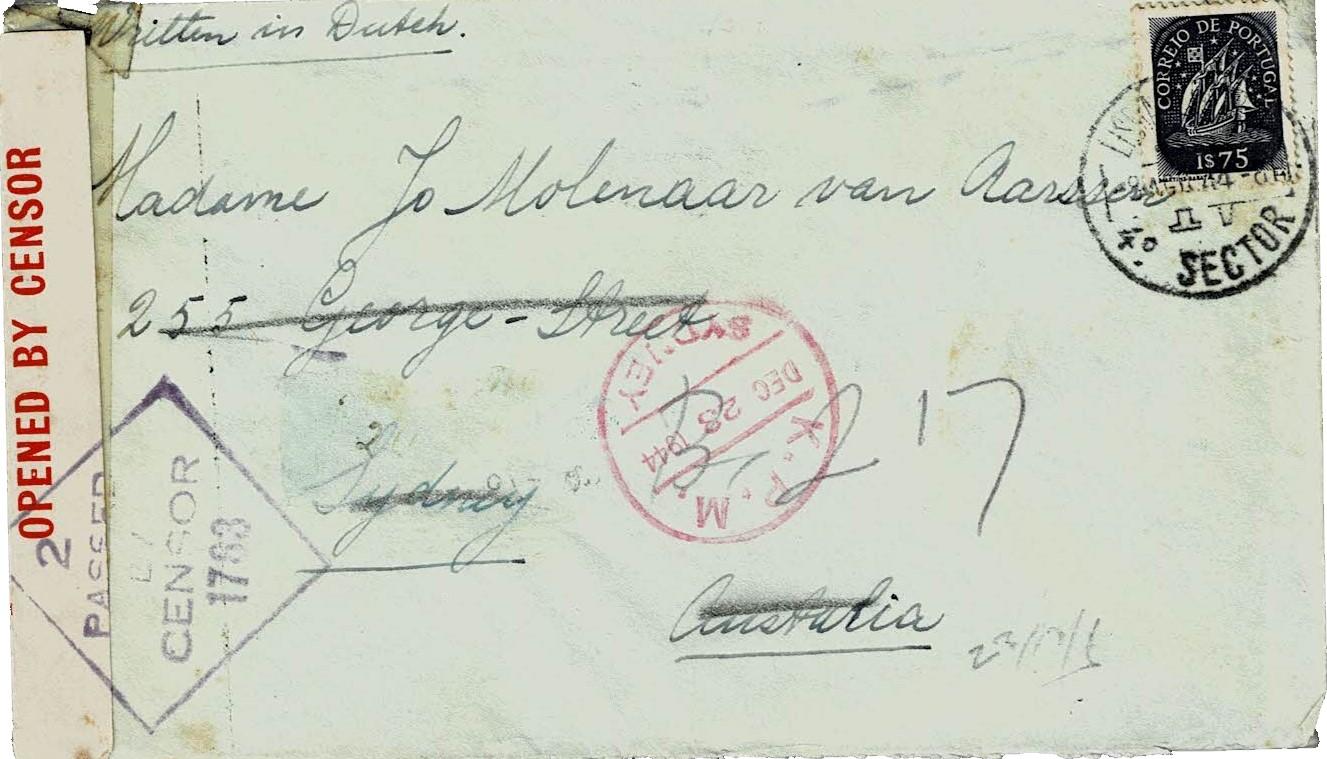 Written in Dutch.
CORREIO DE PORTUGAL
1$75
4º SECTOR
Madame Jo Molenaar van Aarssen
255 George-Street
Sydney
Australia
OPENED BY CENSOR
2 PASSED
BY
CENSOR
1763
SYDNEY
DEC 23 1944
K.P.M.
17